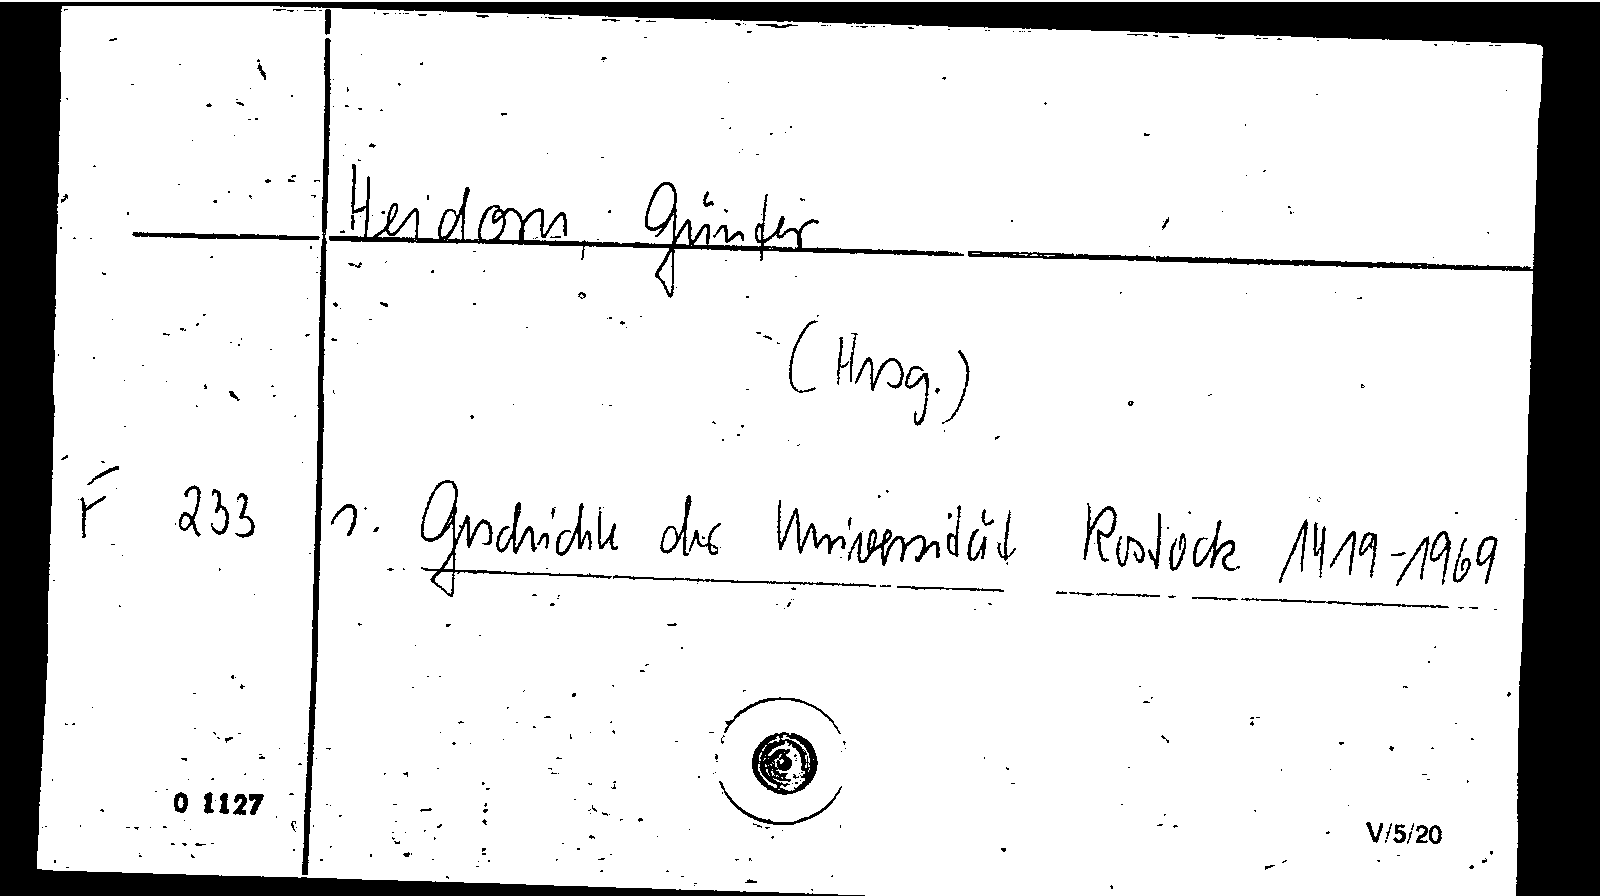 Heidorn, Günter
(Hrsg.)
F 233 s. Geschichte der Universität Rostock 1419-1969
0 1127
V/5/20